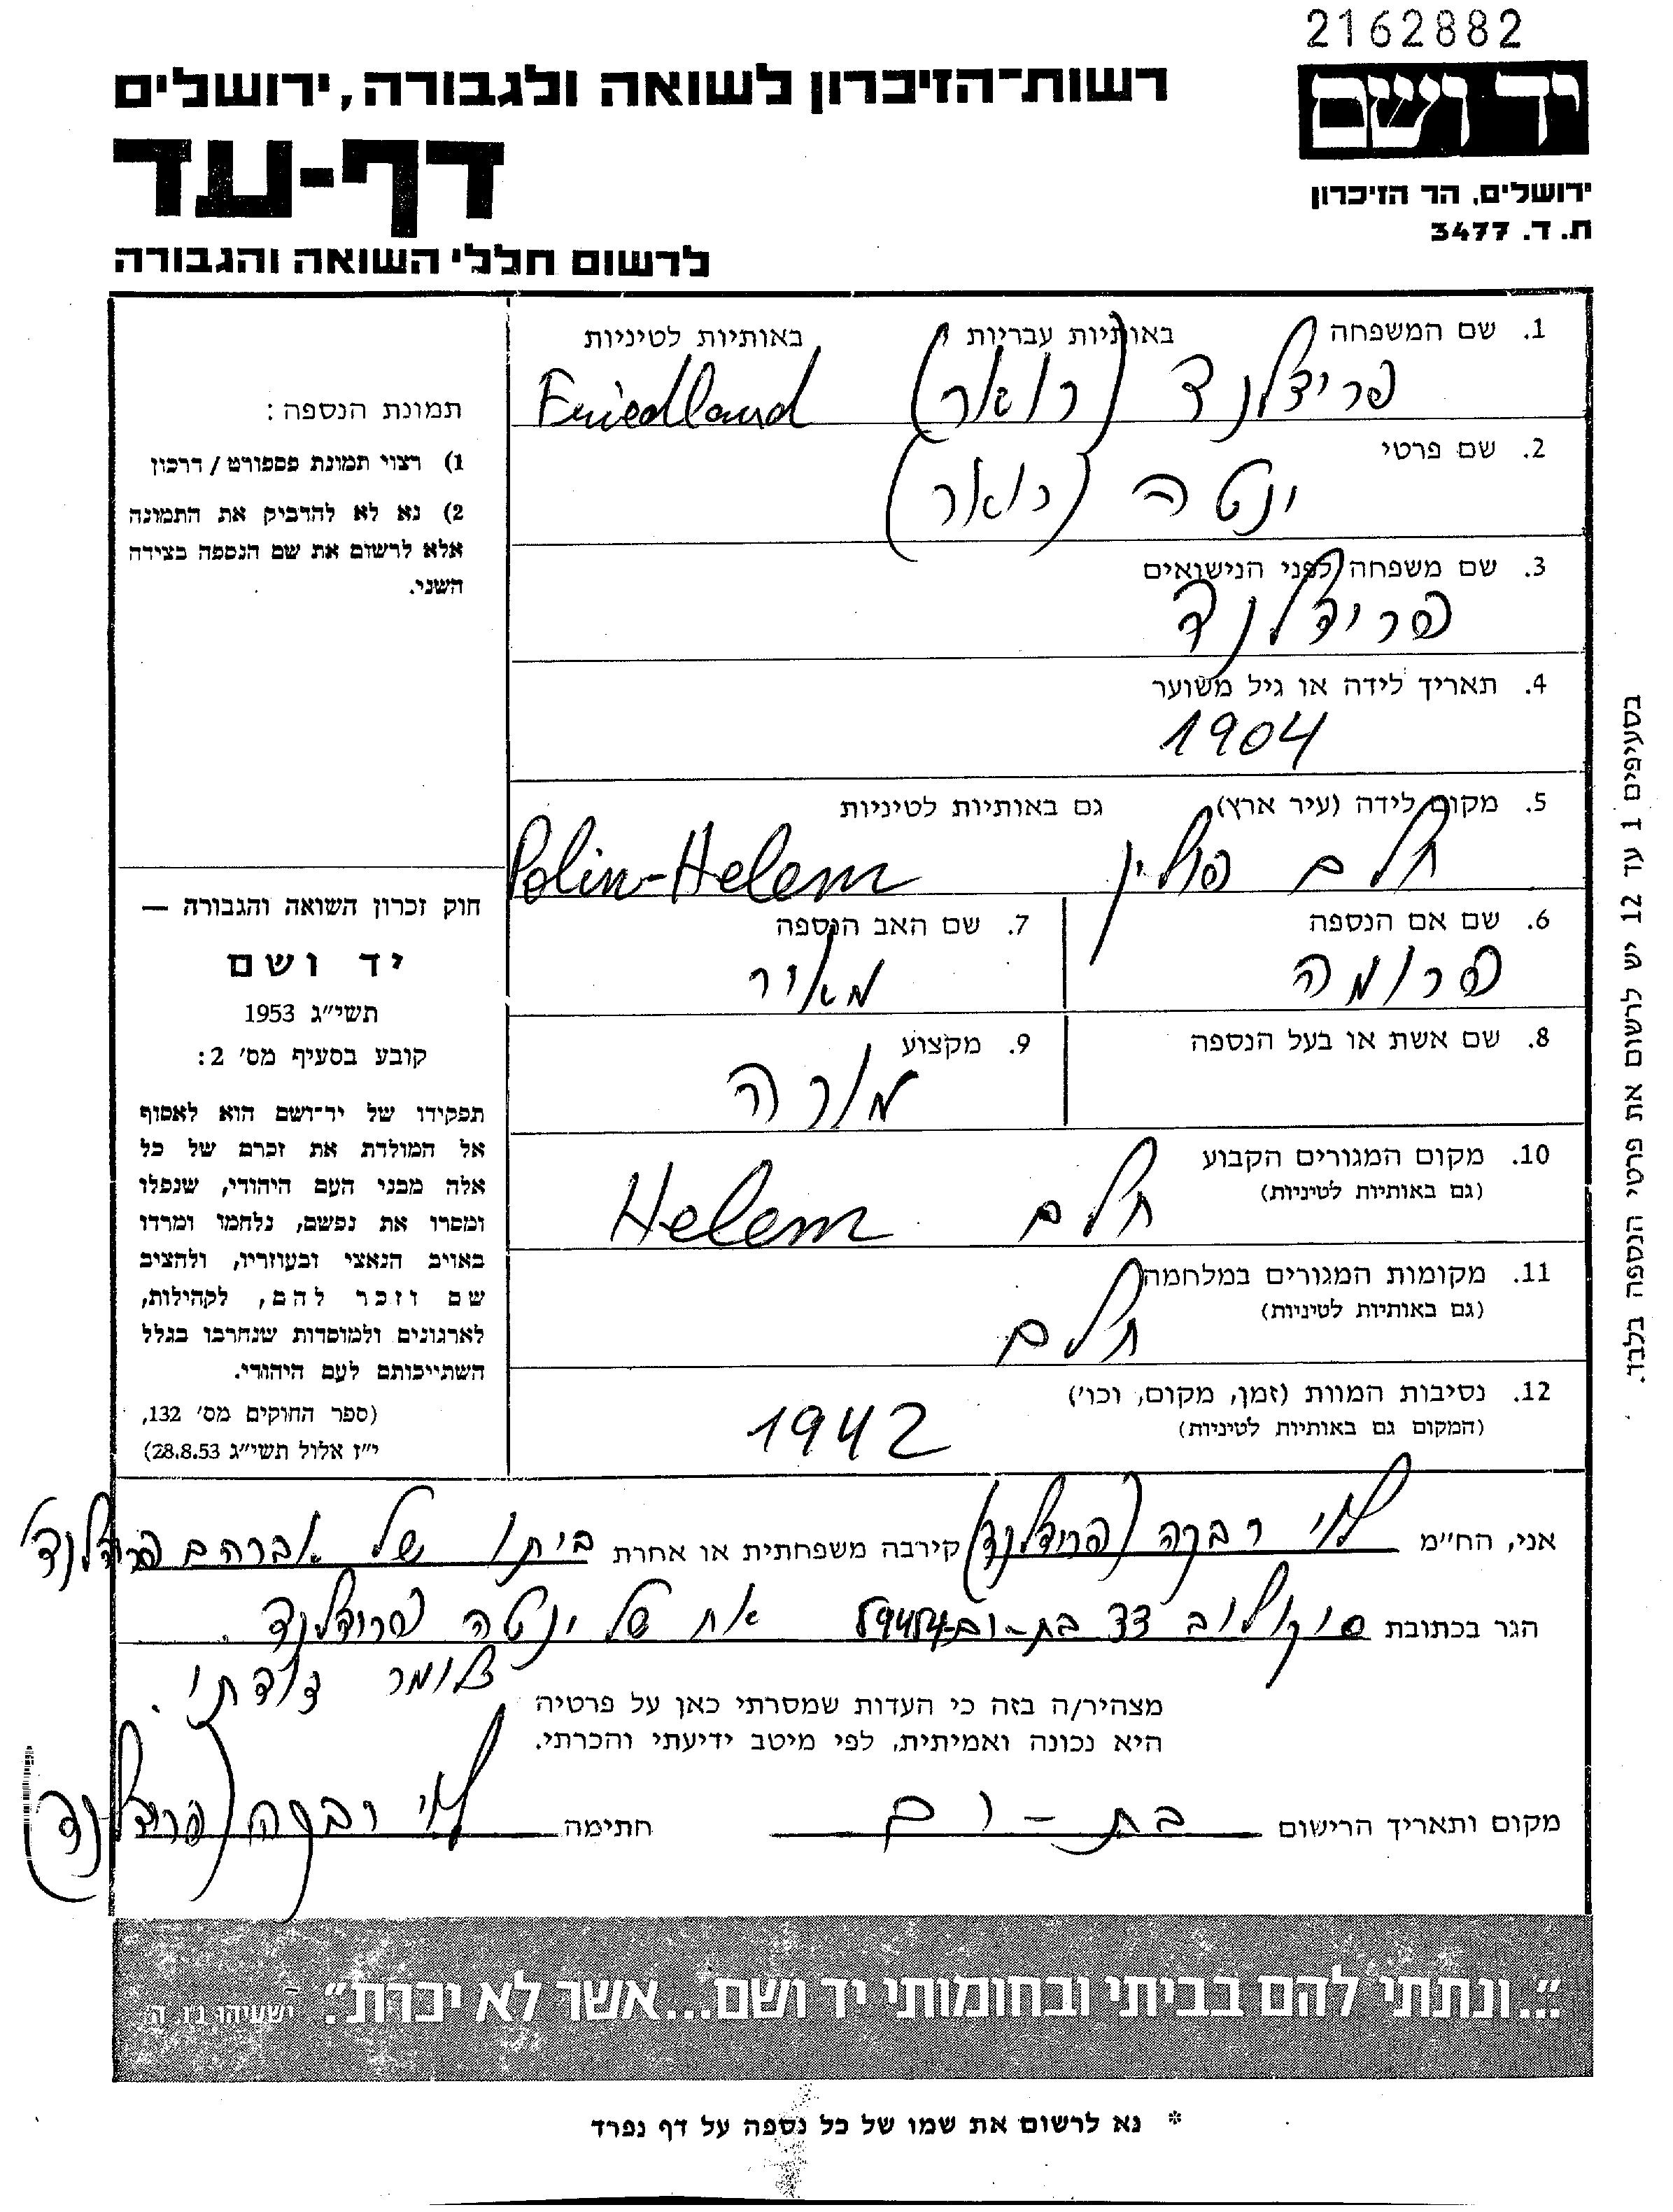 2162882
יד ושם
רשות־הזיכרון לשואה ולגבורה, ירושלים
דף-עד
ירושלים, הר הזיכרון
ת. ד. 3477
לרשום חללי השואה והגבורה
1. שם המשפחה באותיות עבריות באותיות לטיניות
פרידלנד Friedland
2. שם פרטי
ינטה
3. שם משפחה לפני הנישואים
פרידלנד
4. תאריך לידה או גיל משוער
1904
5. מקום לידה (עיר ארץ) גם באותיות לטיניות
חלם פולין Polin-Helem
6. שם אם הנספה 7. שם האב הנספה
פרומה מאיר
8. שם אשת או בעל הנספה 9. מקצוע
מורה
10. מקום המגורים הקבוע
(גם באותיות לטיניות)
חלם Helem
11. מקומות המגורים במלחמה
(גם באותיות לטיניות)
חלם
12. נסיבות המוות (זמן, מקום, וכו')
(המקום גם באותיות לטיניות)
1942
תמונת הנספה:
1) רצוי תמונת פספורט / דרכון
2) נא לא להדביק את התמונה
אלא לרשום את שם הנספה בצידה
השני.
חוק זכרון השואה והגבורה —
יד ושם
תשי״ג 1953
קובע בסעיף מס׳ 2:
תפקידו של יד־ושם הוא לאסוף
אל המולדת את זכרם של כל
אלה מבני העם היהודי, שנפלו
ומסרו את נפשם, נלחמו ומרדו
באויב הנאצי ובעוזריו, ולהציב
שם וזכר להם, לקהילות,
לארגונים ולמוסדות שנחרבו בגלל
השתייכותם לעם היהודי.
(ספר החוקים מס׳ 132,
י״ז אלול תשי״ג 28.8.53)
בסעיפים 1 עד 12 יש לרשום את פרטי הנספה בלבד.
אני, הח״מ לוי רבקה (פרידלנד) קירבה משפחתית או אחרת ביתו של אברהם פרידלנד
הגר בכתובת סוקולוב 33 בת-ים 59454 אח של ינטה פרידלנד
כלומר דודתי.
מצהיר/ה בזה כי העדות שמסרתי כאן על פרטיה
היא נכונה ואמיתית, לפי מיטב ידיעתי והכרתי.
מקום ותאריך הרישום בת-ים חתימה לוי רבקה (פרידלנד)
״...ונתתי להם בביתי ובחומותי יד ושם...אשר לא יכרת״. ישעיהו נו. ה׳
* נא לרשום את שמו של כל נספה על דף נפרד